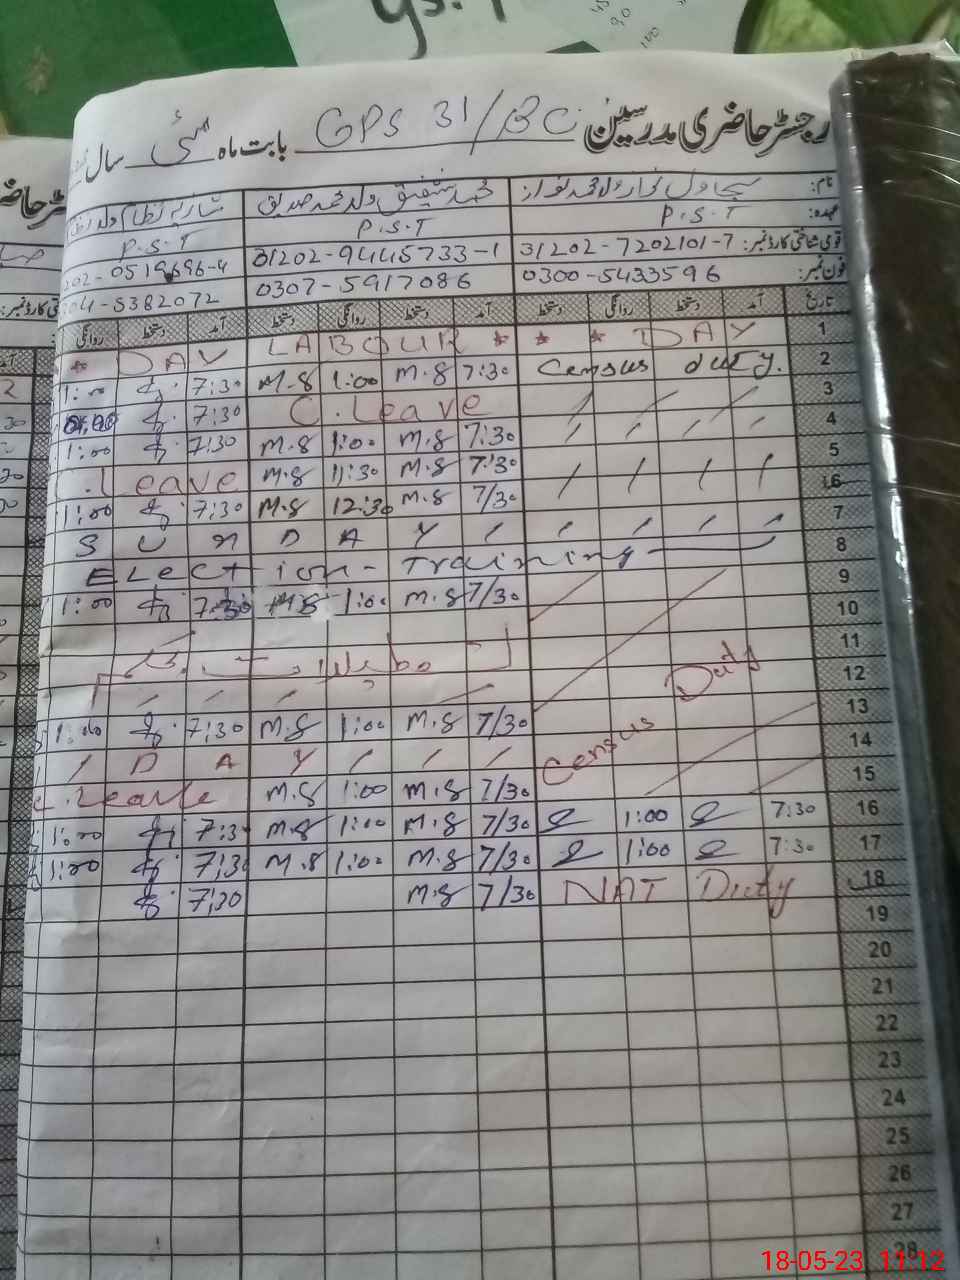 رجسٹر حاضری مدرسین GPS 31/BC بابت ماہ مئی سال
نام: سجاول نماز ولد محمد نواز محمد شفیق ولد محمد صدیق شازیہ نظام ولد
عہدہ: P.S.T P.S.T P.S.T
قومی شناختی کارڈ نمبر: 31202-7202101-7 31202-9445733-1 202-0519696-4
فون نمبر: 0300-5433596 0307-5917086 04-5382072
تاریخ آمد دستخط روانگی دستخط آمد دستخط روانگی دستخط آمد دستخط روانگی
1 * DAY LABOUR * * * DAY
2 1:00 7:30 M.S 1:00 M.S 7:30 Census duty.
3 7:30 C.Leave
4 1:00 7:30 M.S 1:00 M.S 7:30
5 .Leave M.S 11:30 M.S 7:30
6 1:00 7:30 M.S 12:30 M.S 7/30
7 S U N D A Y
8 Election - Training
9 1:00 7:30 M.S 1:00 M.S 7/30
10
11
12 Census Duty
13 1:00 7:30 M.S 1:00 M.S 7/30
14 D A Y
15 C.Leave M.S 1:00 M.S 7/30
16 1:00 7:30 M.S 1:00 M.S 7/30 1:00 7:30
17 1:00 7:30 M.S 1:00 M.S 7/30 1:00 7:30
18 7:30 M.S 7/30 NAT Duty
19
20
21
22
23
24
25
26
27
28
18-05-23 11:12